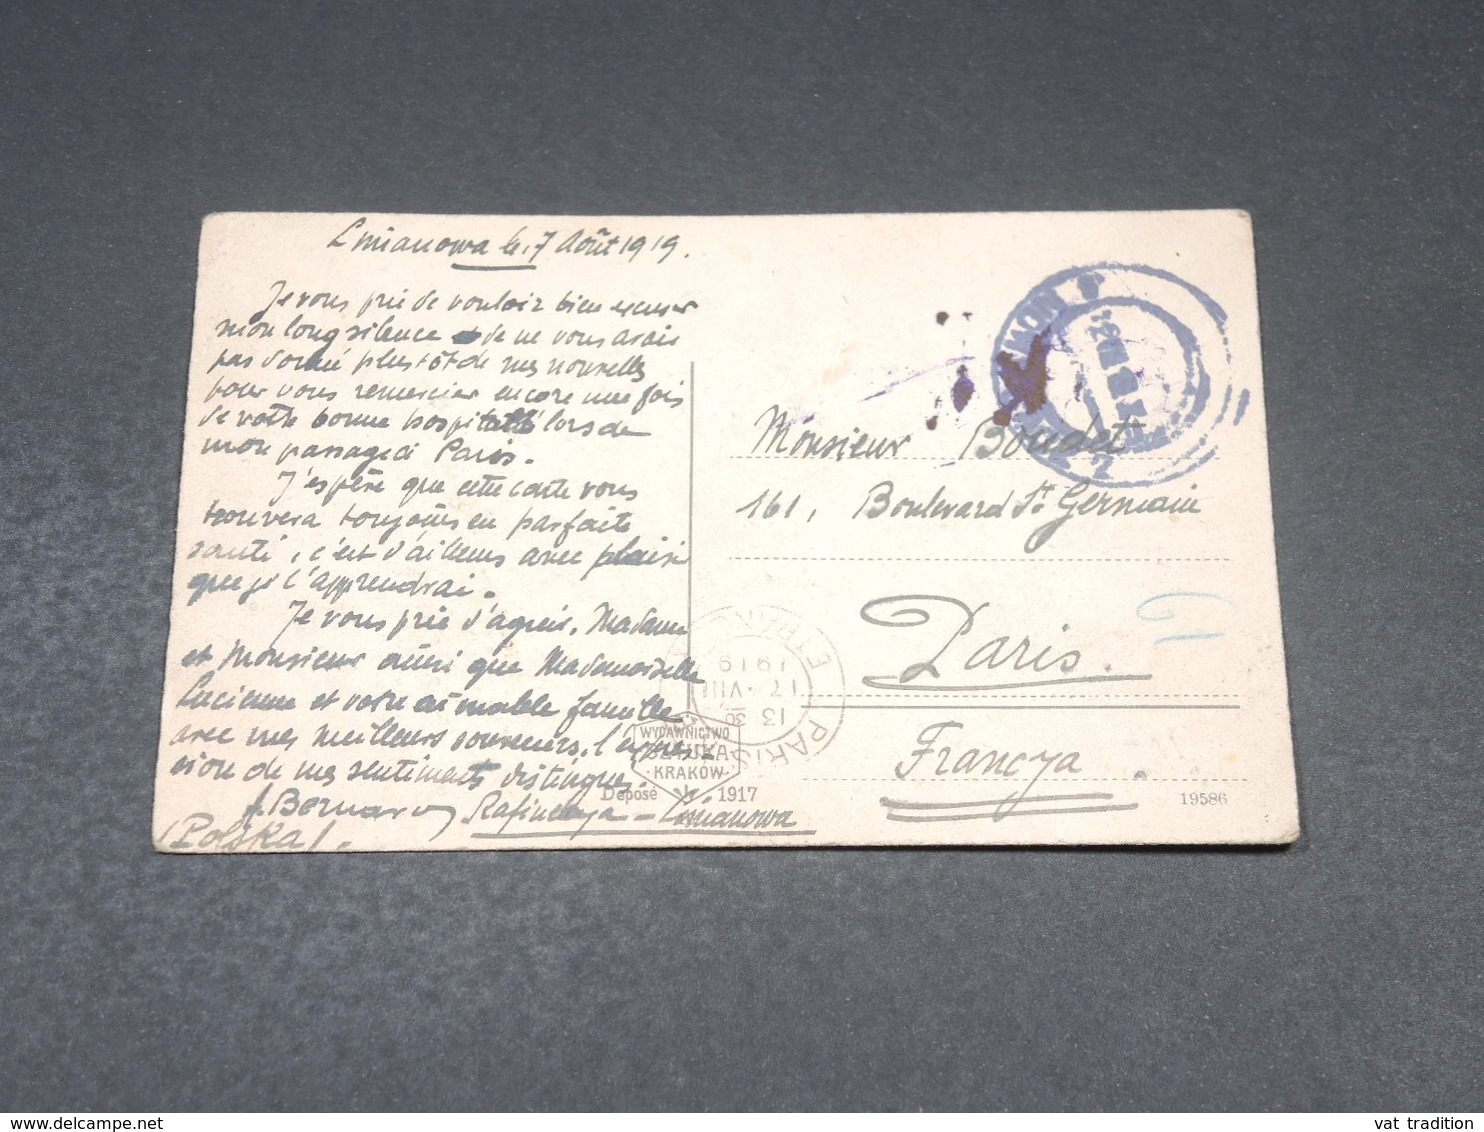 Limanowa le, 7 Août 1919.
Je vous prie de vouloir bien excuser
mon long silence de ne vous avais
pas donné plus tôt de mes nouvelles
pour vous remercier encore une fois
de votre bonne hospitalité lors de
mon passage à Paris.
J'espère que cette carte vous
trouvera toujours en parfaite
santé, c'est d'ailleurs avec plaisir
que je l'apprendrai.
Je vous prie d'agréer, Madame
et Monsieur ainsi que Mademoiselle
Lucienne et votre aimable famille
avec mes meilleurs souvenirs, l'expres-
sion de mes sentiments distingués.
A. Bernard Rafinerya - Limanowa
(Polska).
Monsieur Boudet
161, Boulevard St Germain
Paris.
Francya
WYDAWNICTWO
SZTUKA
KRAKÓW
Deposé 1917
19586
PARIS ETRANGER
13 30
17 · VIII
1919
vat tradition